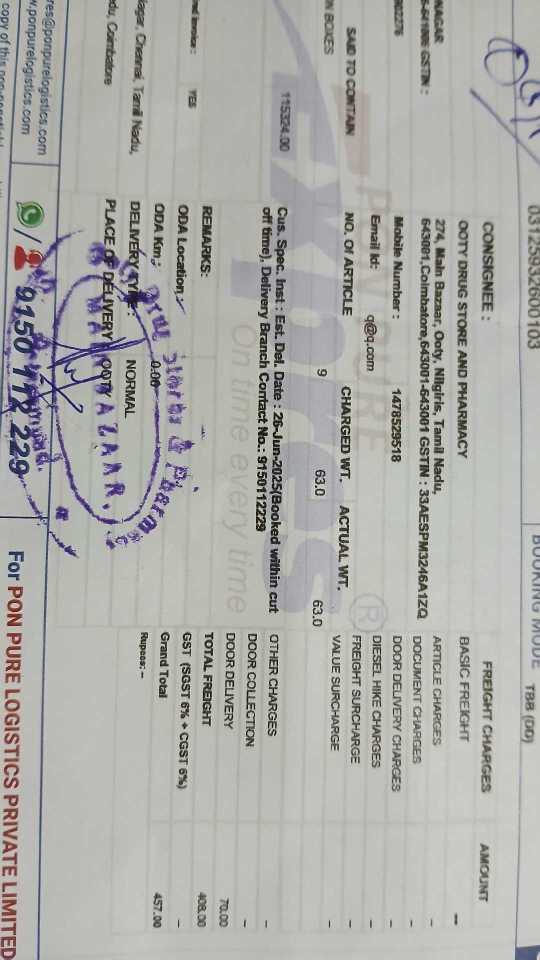 03125932600103
BOOKING MODE TBB (DD)
NAGAR
GSTIN :
CONSIGNEE :
OOTY DRUG STORE AND PHARMACY
274, Main Bazaar, Ooty, Nilgiris, Tamil Nadu,
643001,Coimbatore,643001-643001 GSTIN : 33AESPM3246A1ZQ
Mobile Number : 1478529518
Email Id: q@q.com
SAID TO CONTAIN NO. Of ARTICLE CHARGED WT. ACTUAL WT.
N BOXES 9 63.0 63.0
115324.00
Cus. Spec. Inst : Est. Del. Date : 26-Jun-2025(Booked within cut
off time), Delivery Branch Contact No.: 9150112229
On time every time
REMARKS:
YES
ODA Location :
ODA Km: 0.00
DELIVERY TYPE: NORMAL
PLACE OF DELIVERY OOTY
agar, Chennai, Tamil Nadu,
du, Coimbatore
FREIGHT CHARGES AMOUNT
BASIC FREIGHT --
ARTICLE CHARGES -
DOCUMENT CHARGES -
DOOR DELIVERY CHARGES -
DIESEL HIKE CHARGES -
FREIGHT SURCHARGE -
VALUE SURCHARGE -
OTHER CHARGES -
DOOR COLLECTION -
DOOR DELIVERY 70.00
TOTAL FREIGHT 408.00
GST (SGST 6% + CGST 6%) -
Grand Total 457.00
Rupees: --
res@ponpurelogistics.com
w.ponpurelogistics.com
9150 112 229
For PON PURE LOGISTICS PRIVATE LIMITED